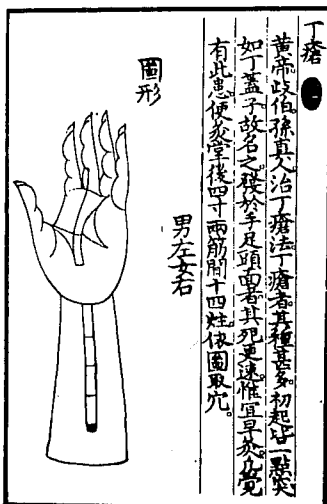 丁瘡
黄帝歧伯孫真人治丁瘡法丁瘡者其種甚多初起必一點突
如丁蓋子故名之發於手足頭面者其死更速惟宜早灸凡覺
有此患便灸掌後四寸兩筋間十四炷依圖取穴。
男左女右
圖形